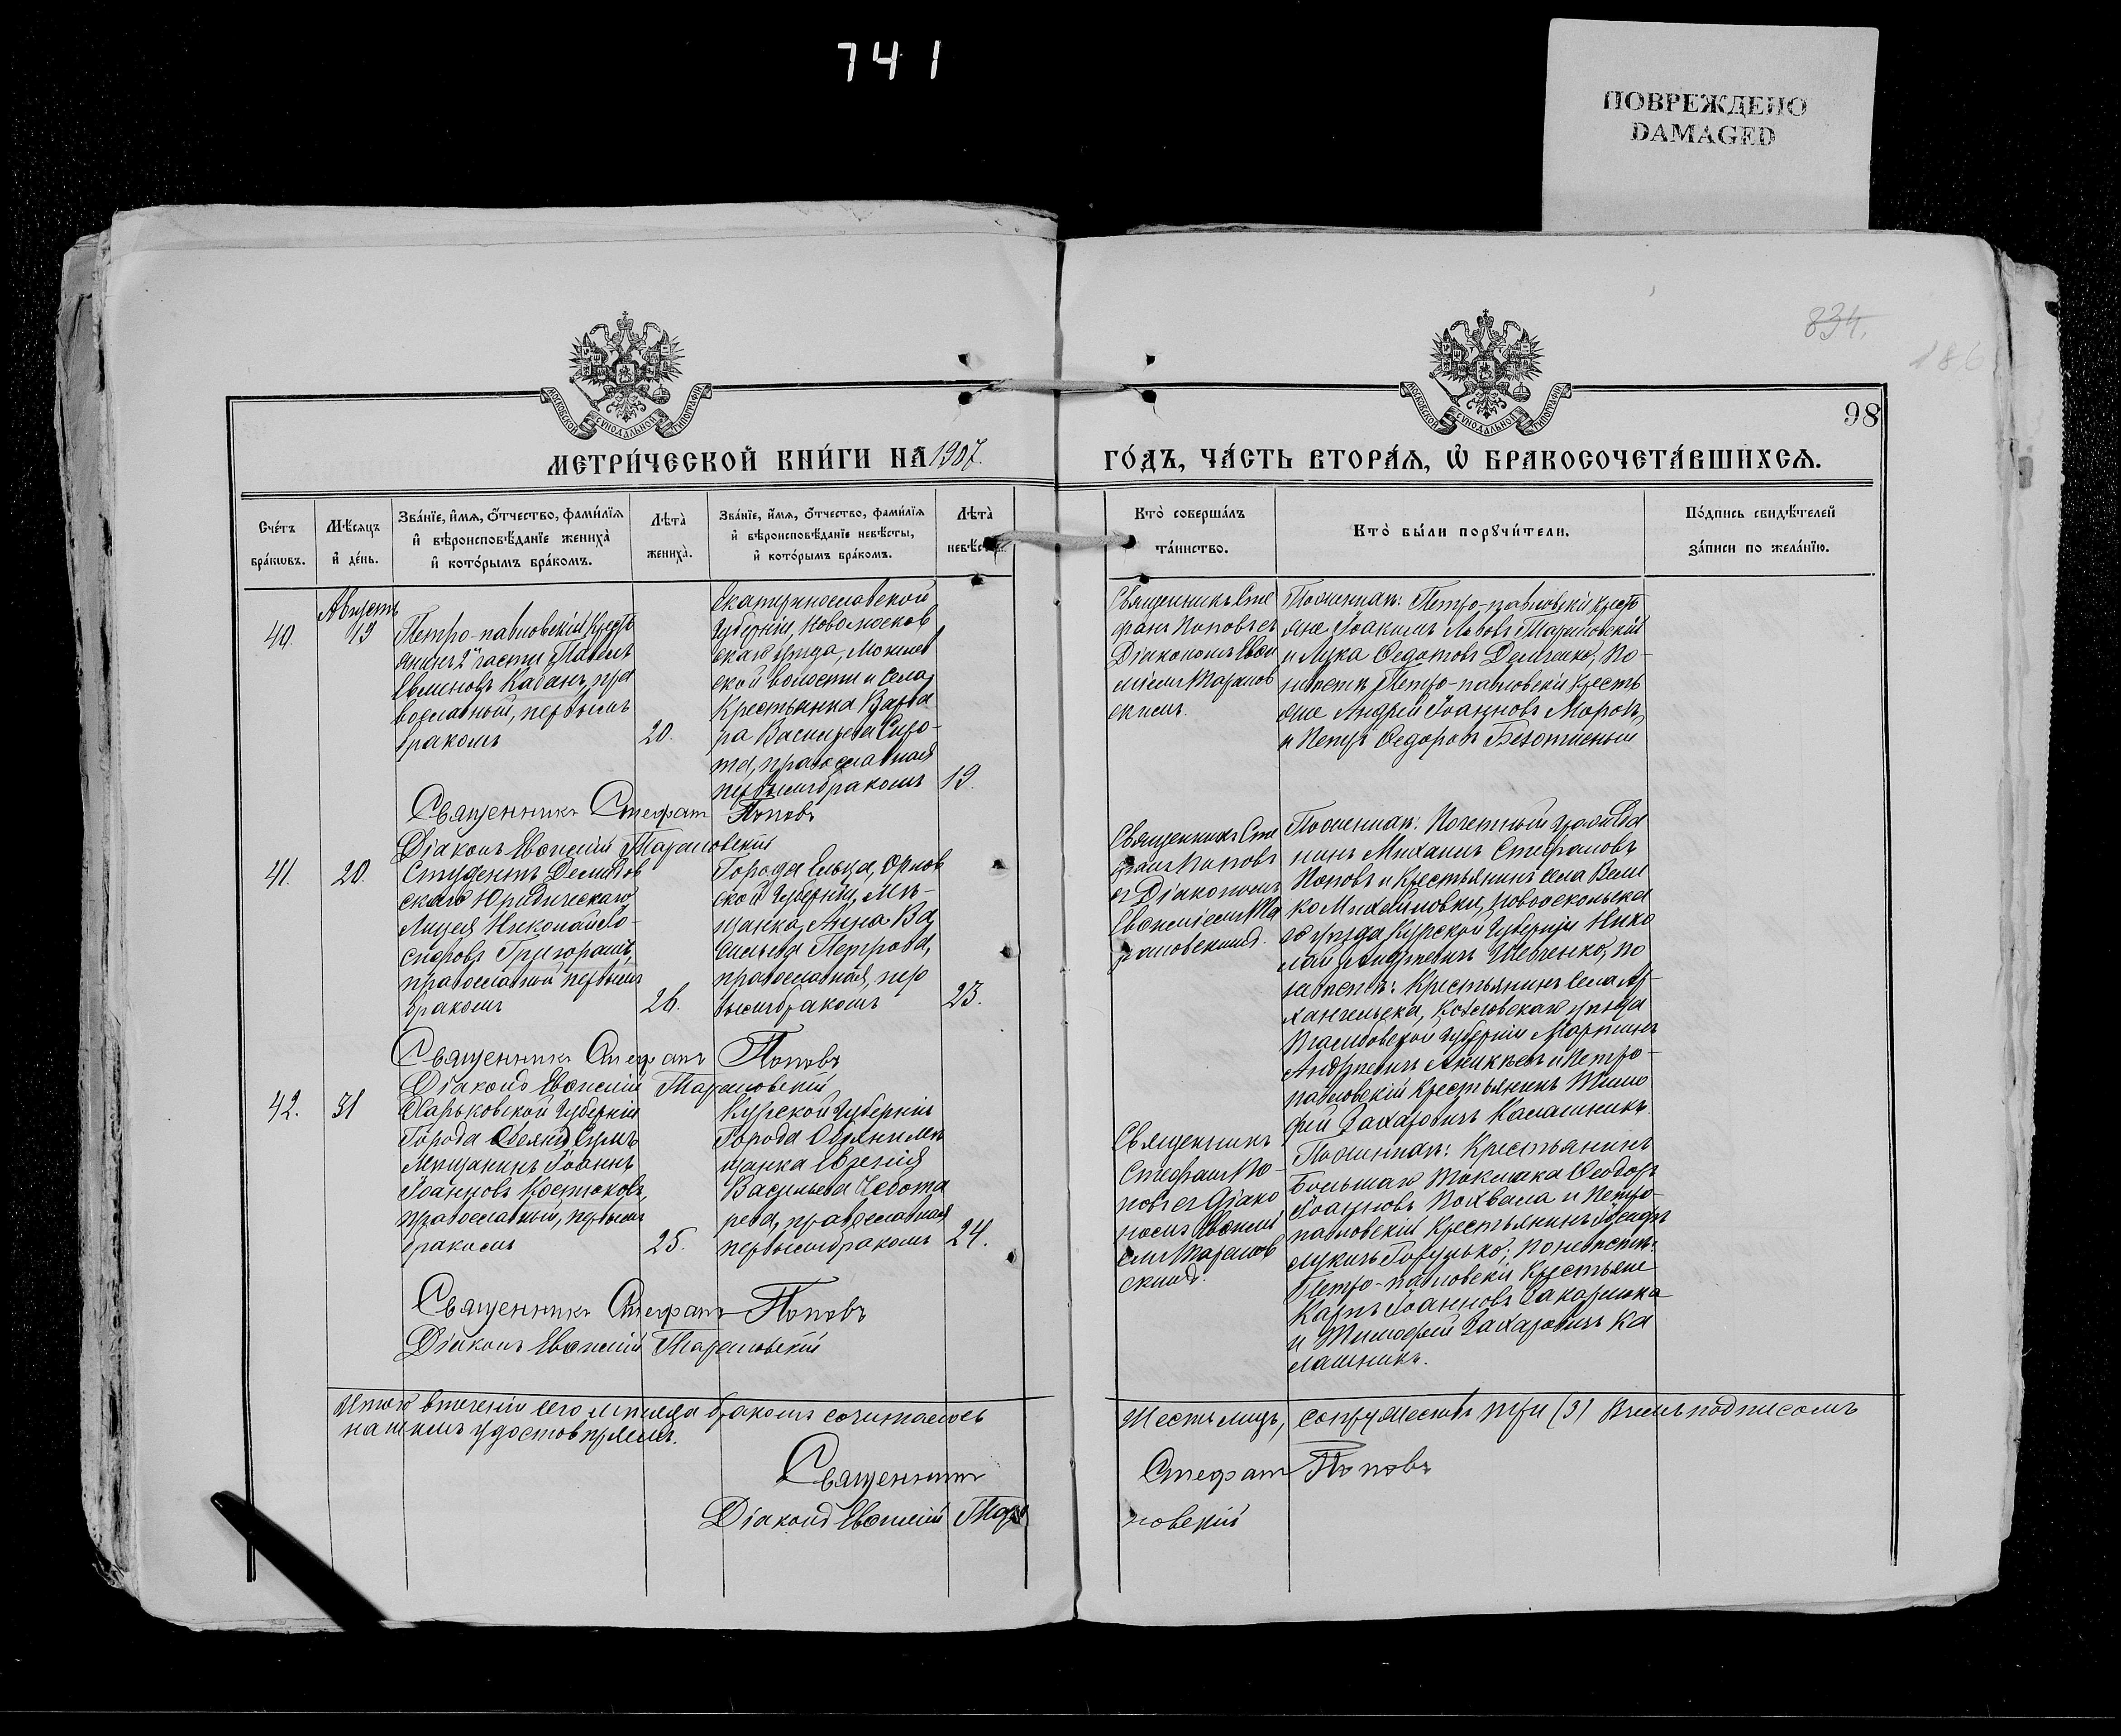 741
ПОВРЕЖДЕНО
DAMAGED
834.
186
98
МЕТРИ́ЧЕСКОЙ КНИ́ГИ НА 1907.
ГО́ДЪ, ЧА́СТЬ ВТОРА́Ѧ, Ѡ҆ БРАКОСОЧЕТА́ВШИХСѦ.
МОСКОВСКОЙ СѴНОДАЛЬНОЙ ТИПОГРАФІИ
МОСКОВСКОЙ СѴНОДАЛЬНОЙ ТИПОГРАФІИ
Сче́тъ бра́кѡвъ.
Мѣ́сѧцъ и҆ де́нь.
Зва́нїе, и҆́мѧ, ѻ҆́тчество, фами́лїѧ
и҆ вѣроисповѣ́данїе жениха̀
и҆ кото́рымъ бра́комъ.
Лѣ́та̀
жениха̀.
Зва́нїе, и҆́мѧ, ѻ҆́тчество, фами́лїѧ
и҆ вѣроисповѣ́данїе невѣ́сты,
и҆ кото́рымъ бра́комъ.
Лѣ́та̀
невѣ́с
Кто̀ соверша́лъ
та́инство.
Кто̀ бы́ли порꙋчи́тели.
По́дпись свидѣ́телей
за́писи по жела́нїю.
40.
Августъ
19
Петро-павловскій Крестъ
янинъ 2й части Павелъ
Евменовъ Кабанъ, пра
вославный, первымъ
бракомъ
20.
Екатеринославской
Губерніи, Новомосков
скаго уѣзда, Могилев
ской волости и села
Крестьянка Варва
ра Васильева Сиро-
та, православная
первымъ бракомъ
19.
Священникъ Сте
фанъ Поповъ съ
Діакономъ Евѳи
міемъ Таранов
скимъ.
По женихѣ: Петро-павловскіи Кресть
яне Іоакимъ Львовъ Тарановскій
и Лука Ѳедотовъ Демченко, по-
невѣстѣ Петро-павловскіи Кресть
яне Андрей Іоанновъ Морозъ,
и Петръ Ѳедоровъ
Священникъ Стефанъ Поповъ
Діаконъ Евѳимій Тарановскій
41.
20.
Студентъ Демидов
скаго Юридическаго
Лицея Николай Іо-
сифовъ Григорашъ,
православный первымъ
бракомъ
26.
Города Ельца, Орлов
ской Губерніи, Мѣ-
щанка Анна Ва
сильева Петрова,
православная, пер
вымъ бракомъ
23.
Священникъ Сте
фанъ Поповъ
съ Діакономъ
Евѳиміемъ Та
рановскимъ.
По женихѣ: Почетный гражда
нинъ Михаилъ Стефановъ
Поповъ и Крестьянинъ села Вели
ко Михайловки, Новооскольска
го уѣзда Курской Губерніи Нико
лай Андреевичъ Шевченко, по
невѣстѣ: Крестьянинъ села Ар-
хангельска, Козловскаго уѣзда
Тамбовской Губерніи Мартинъ
Андреевичъ Аникѣевъ и Петро-
павловскій Крестьянинъ Тимо
фей Захаровичъ Калашникъ.
Священникъ Стефанъ Поповъ
Діаконъ Евѳимій Тарановскій
42.
31
Харьковской Губерніи
Города Сумъ
Мѣщанинъ Іоаннъ
Іоанновъ Костюковъ,
православный, первымъ
бракомъ
25.
Курской Губерніи
Города Обояни мѣ
щанка Евгенія
Васильева Чебота
рева, православная
первымъ бракомъ
24.
Священникъ
Стефанъ По-
повъ съ Діако
номъ Евѳимі
емъ Таранов
скимъ.
По женихѣ: Крестьянинъ
Большаго Токмака Ѳеодоръ
Іоанновъ Похвала и Петро-
павловскій Крестьянинъ Іосифъ
Лукичъ; По невѣстѣ:
Петро-павловскіи Крестьяне
Карпъ Іоанновъ
и Тимофей Захаровичъ Ка
лашникъ.
Священникъ Стефанъ Поповъ
Діаконъ Евѳимій Тарановскій
Итого втеченіи сего мѣсяца бракомъ сочиталось шесть лицъ, супружествъ три (3) В чемъ подписомъ
нашимъ удостовѣряемъ.
Священникъ Стефанъ Поповъ
Діаконъ Евѳимій Тарановскій